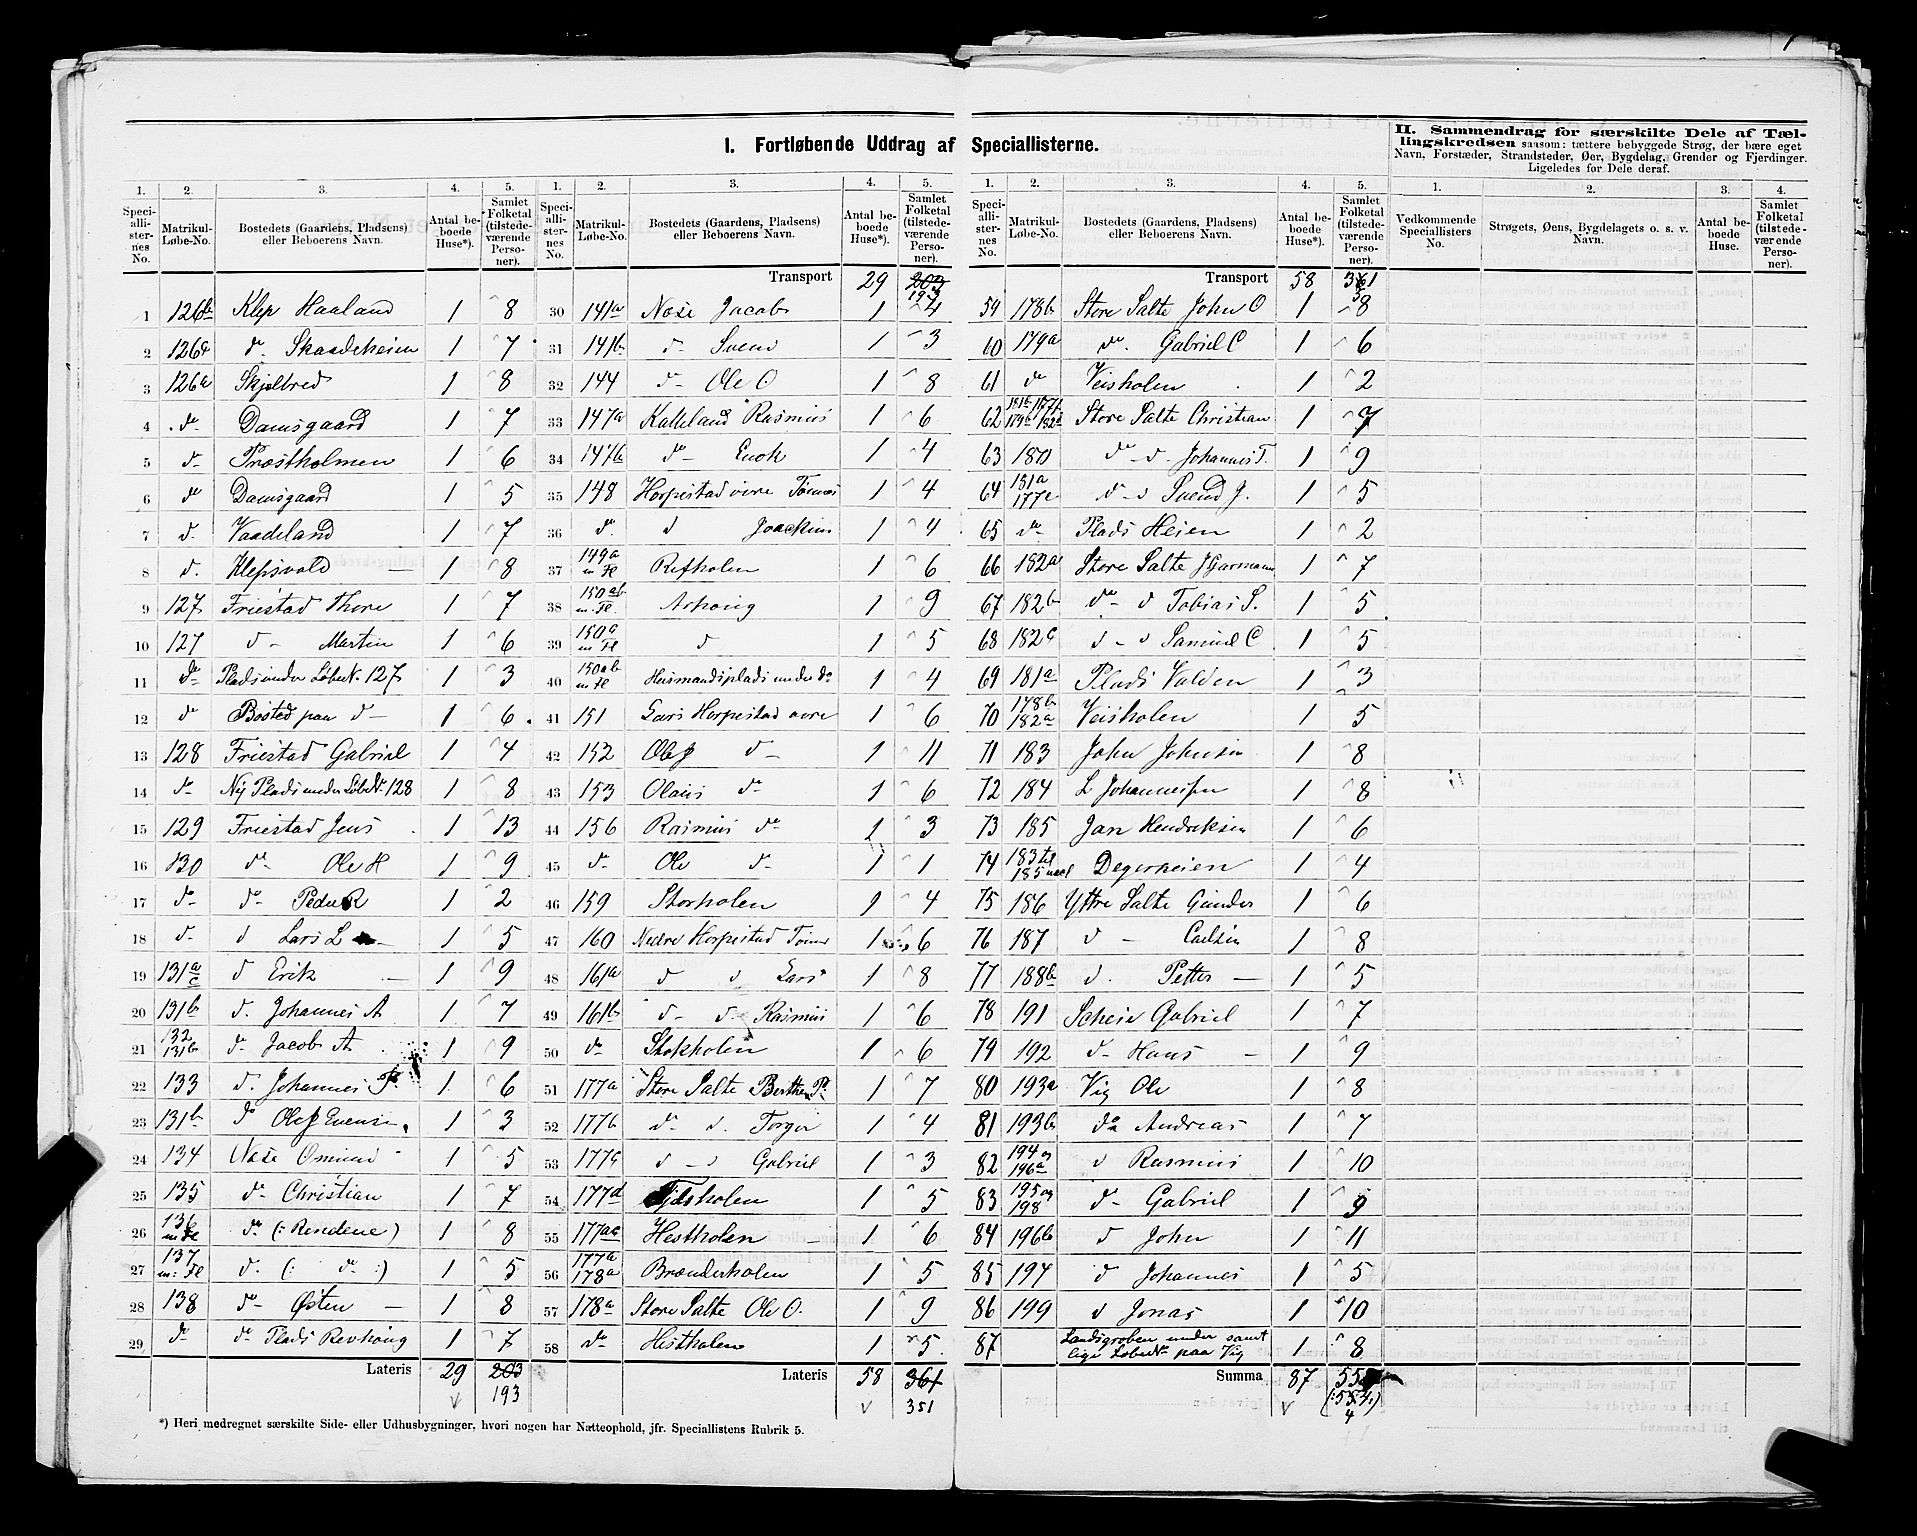 I. Fortløbende Uddrag af Speciallisterne.
II. Sammendrag for særskilte Dele af Tællingskredsen saasom: tættere bebyggede Strøg, der bære eget Navn, Forstæder, Strandsteder, Øer, Bygdelag, Grender og Fjerdinger. Ligeledes for Dele deraf.
1. 2. 3. 4. 5. 1. 2. 3. 4. 5. 1. 2. 3. 4. 5. 1. 2. 3. 4.
Speciallisternes No. Matrikul-Løbe-No. Bostedets (Gaardens, Pladsens) eller Beboerens Navn. Antal beboede Huse*). Samlet Folketal (tilstedeværende Personer).
Speciallisternes No. Matrikul-Løbe-No. Bostedets (Gaardens, Pladsens) eller Beboerens Navn. Antal beboede Huse*). Samlet Folketal (tilstedeværende Personer).
Speciallisternes No. Matrikul-Løbe-No. Bostedets (Gaardens, Pladsens) eller Beboerens Navn. Antal beboede Huse*). Samlet Folketal (tilstedeværende Personer).
Vedkommende Speciallisters No. Strøgets, Øens, Bygdelagets o. s. v. Navn. Antal beboede Huse. Samlet Folketal (tilstedeværende Personer).
1 126b Klep Haaland 1 8
2 126c do. Skaadeheien 1 7
3 126a Skjelbred 1 8
4 do Damsgaard 1 7
5 do Præstholmen 1 6
6 do Damsgaard 1 5
7 d. Vaadeland 1 7
8 d. Klepsvold 1 8
9 127 Friestad Thore 1 7
10 127 d - Martin 1 6
11 do Plads under Løbe N. 127 1 3
12 do Bosted paa d - 1 6
13 128 Friestad Gabriel 1 4
14 do Ny Plads under Løbe N. 128 1 8
15 129 Friestad Jens 1 13
16 130 do Ole H 1 9
17 do do Peder R 1 2
18 d- d Lars L 1 5
19 131a c d Erik 1 9
20 131b d. Johannes A 1 7
21 132 131b do Jacob A 1 9
22 133 d. Johannes 1 6
23 131b do Ole Evensen 1 3
24 134 Næse Omund 1 5
25 135 do Christian 1 7
26 136 m Fl do (: Rendene) 1 8
27 137 m: Fl d. (: do :) 1 5
28 138 do Østen 1 8
29 do do Plads Revhaug 1 7
Lateris 29 203
193
Transport 29 203
193
30 141a Næse Jacob 1 4
31 141b d- Svend 1 3
32 144 d- Ole O 1 8
33 147a Kalleland Rasmus 1 6
34 147b do Enok 1 4
35 148 Horpestad øvre Tønnes 1 4
36 do d Joackim 1 4
37 149a m Fl Refholen 1 6
38 150ab m: Fl. Arhoug 1 9
39 150c m Fl d 1 5
40 150ab m Fl Husmandsplads under do 1 4
41 151 Lars Horpestad øvre 1 6
42 152 Ole d- 1 11
43 153 Olaus do 1 6
44 156 Rasmus do 1 3
45 do Ole d- 1 1
46 159 Storholen 1 4
47 160 Nedre Horpestad 1 6
48 161a d d Lars 1 8
49 161b d- d. Rasmus 1 6
50 do Stokholen 1 6
51 177a Store Salte Berthe P. 1 7
52 177b do d. Torger 1 4
53 177c d - d Gabriel 1 3
54 177d 1 5
55 177ac Hestholen 1 6
56 177a 178a Brænderholen 1 5
57 178a Store Salte Ole O. 1 9
58 do Hestholen 1 5
Lateris 58 361
351
Transport 58 361
59 178b Store Salte John O 1 8
60 179a do. Gabriel C 1 6
61 do Veisholen 1 2
62 Store Salte Christian 1 7
63 180 do - d. Johannes T. 1 9
64 181a 177c d - d Svend J. 1 5
65 do Plads Heien 1 2
66 182a Store Salte J Garmann 1 7
67 182b do - d Tobias S. 1 5
68 182c d - d Samuel C 1 5
69 181a Plads Volden 1 3
70 178b 182a Veisholen 1 5
71 183 John Johnsen 1 8
72 184 L Johannessen 1 8
73 185 Jan Hendriksen 1 6
74 183 til 185 Degerheien 1 4
75 186 Yttre Salte Gunder 1 6
76 187 d - Carlsen 1 8
77 188b d. Petter 1 5
78 191 Scheie Gabriel 1 7
79 192 d- Hans 1 9
80 193a Vig Ole 1 8
81 193b do Andreas 1 7
82 194 og 196a d Rasmus 1 10
83 195 og 198 d- Gabriel 1 9
84 196b d John 1 11
85 197 d Johannes 1 5
86 199 d Jonas 1 10
87 Landsgroben under samtlige Løbe No paa Vig 1 8
Summa 87
(:554:)
4
*) Heri medregnet særskilte Side- eller Udhusbygninger, hvori nogen har Natteophold, jfr. Speciallistens Rubrik 5.